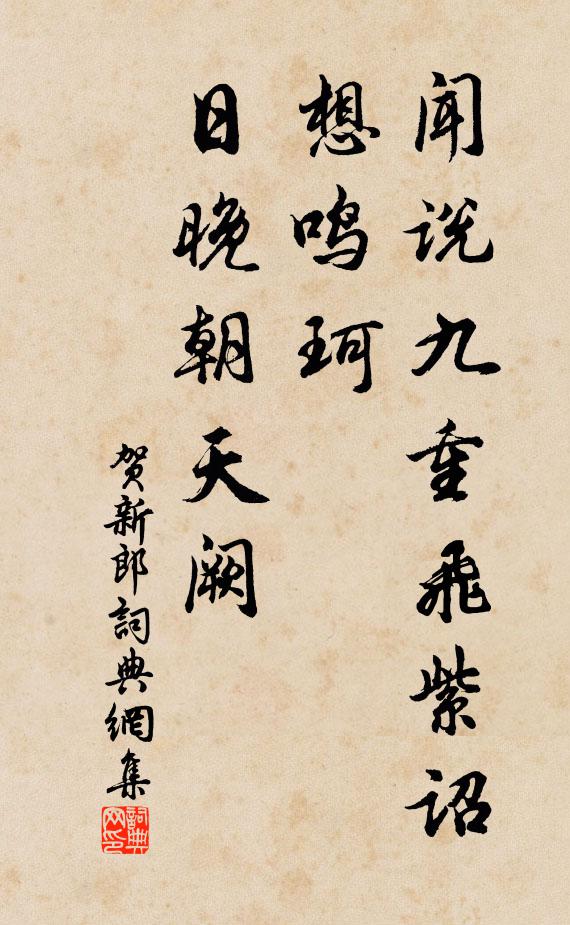 闻说九重飞紫诏
想鸣珂
日晚朝天阙
贺新郎詞典網集
詞典网印